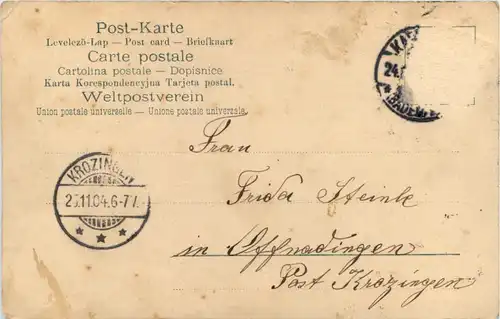 Post-Karte
Levelező-Lap — Post card — Briefkaart
Carte postale
Cartolina postale — Dopisnice
Karta Korespondencyjna Tarjeta postal.
Weltpostverein
Union postale universelle — Unione postale universale.
24.
Frau
KROZINGEN
11.04.6-7
Frida Steinle
in Offnadingen
Post Krozingen